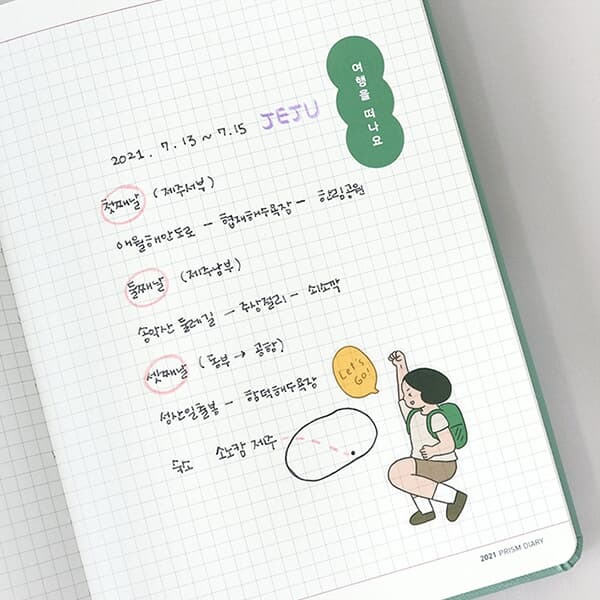 여행을 떠나요
2021. 7. 13 ~ 7. 15 JEJU
첫째날 (제주서부)
애월해안도로 - 협재해수욕장 - 한림공원
둘째날 (제주남부)
송악산 둘레길 → 주상절리 - 쇠소깍
셋째날 (동부 → 공항)
Let's
Go!
성산일출봉 - 함덕해수욕장
숙소 소노캄 제주
2021 PRISM DIARY